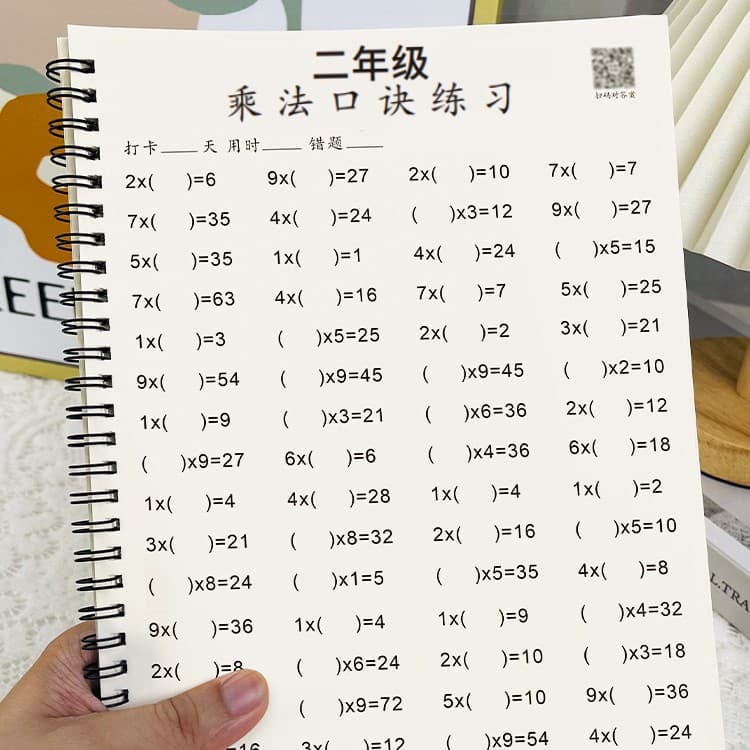 二年级
乘法口诀练习
扫码对答案
打卡____天 用时____ 错题____
2x( )=6 9x( )=27 2x( )=10 7x( )=7
7x( )=35 4x( )=24 ( )x3=12 9x( )=27
5x( )=35 1x( )=1 4x( )=24 ( )x5=15
7x( )=63 4x( )=16 7x( )=7 5x( )=25
1x( )=3 ( )x5=25 2x( )=2 3x( )=21
9x( )=54 ( )x9=45 ( )x9=45 ( )x2=10
1x( )=9 ( )x3=21 ( )x6=36 2x( )=12
( )x9=27 6x( )=6 ( )x4=36 6x( )=18
1x( )=4 4x( )=28 1x( )=4 1x( )=2
3x( )=21 ( )x8=32 2x( )=16 ( )x5=10
( )x8=24 ( )x1=5 ( )x5=35 4x( )=8
9x( )=36 1x( )=4 1x( )=9 ( )x4=32
2x( )=8 ( )x6=24 2x( )=10 ( )x3=18
( )x9=72 5x( )=10 9x( )=36
=16 3x( )=12 ( )x9=54 4x( )=24